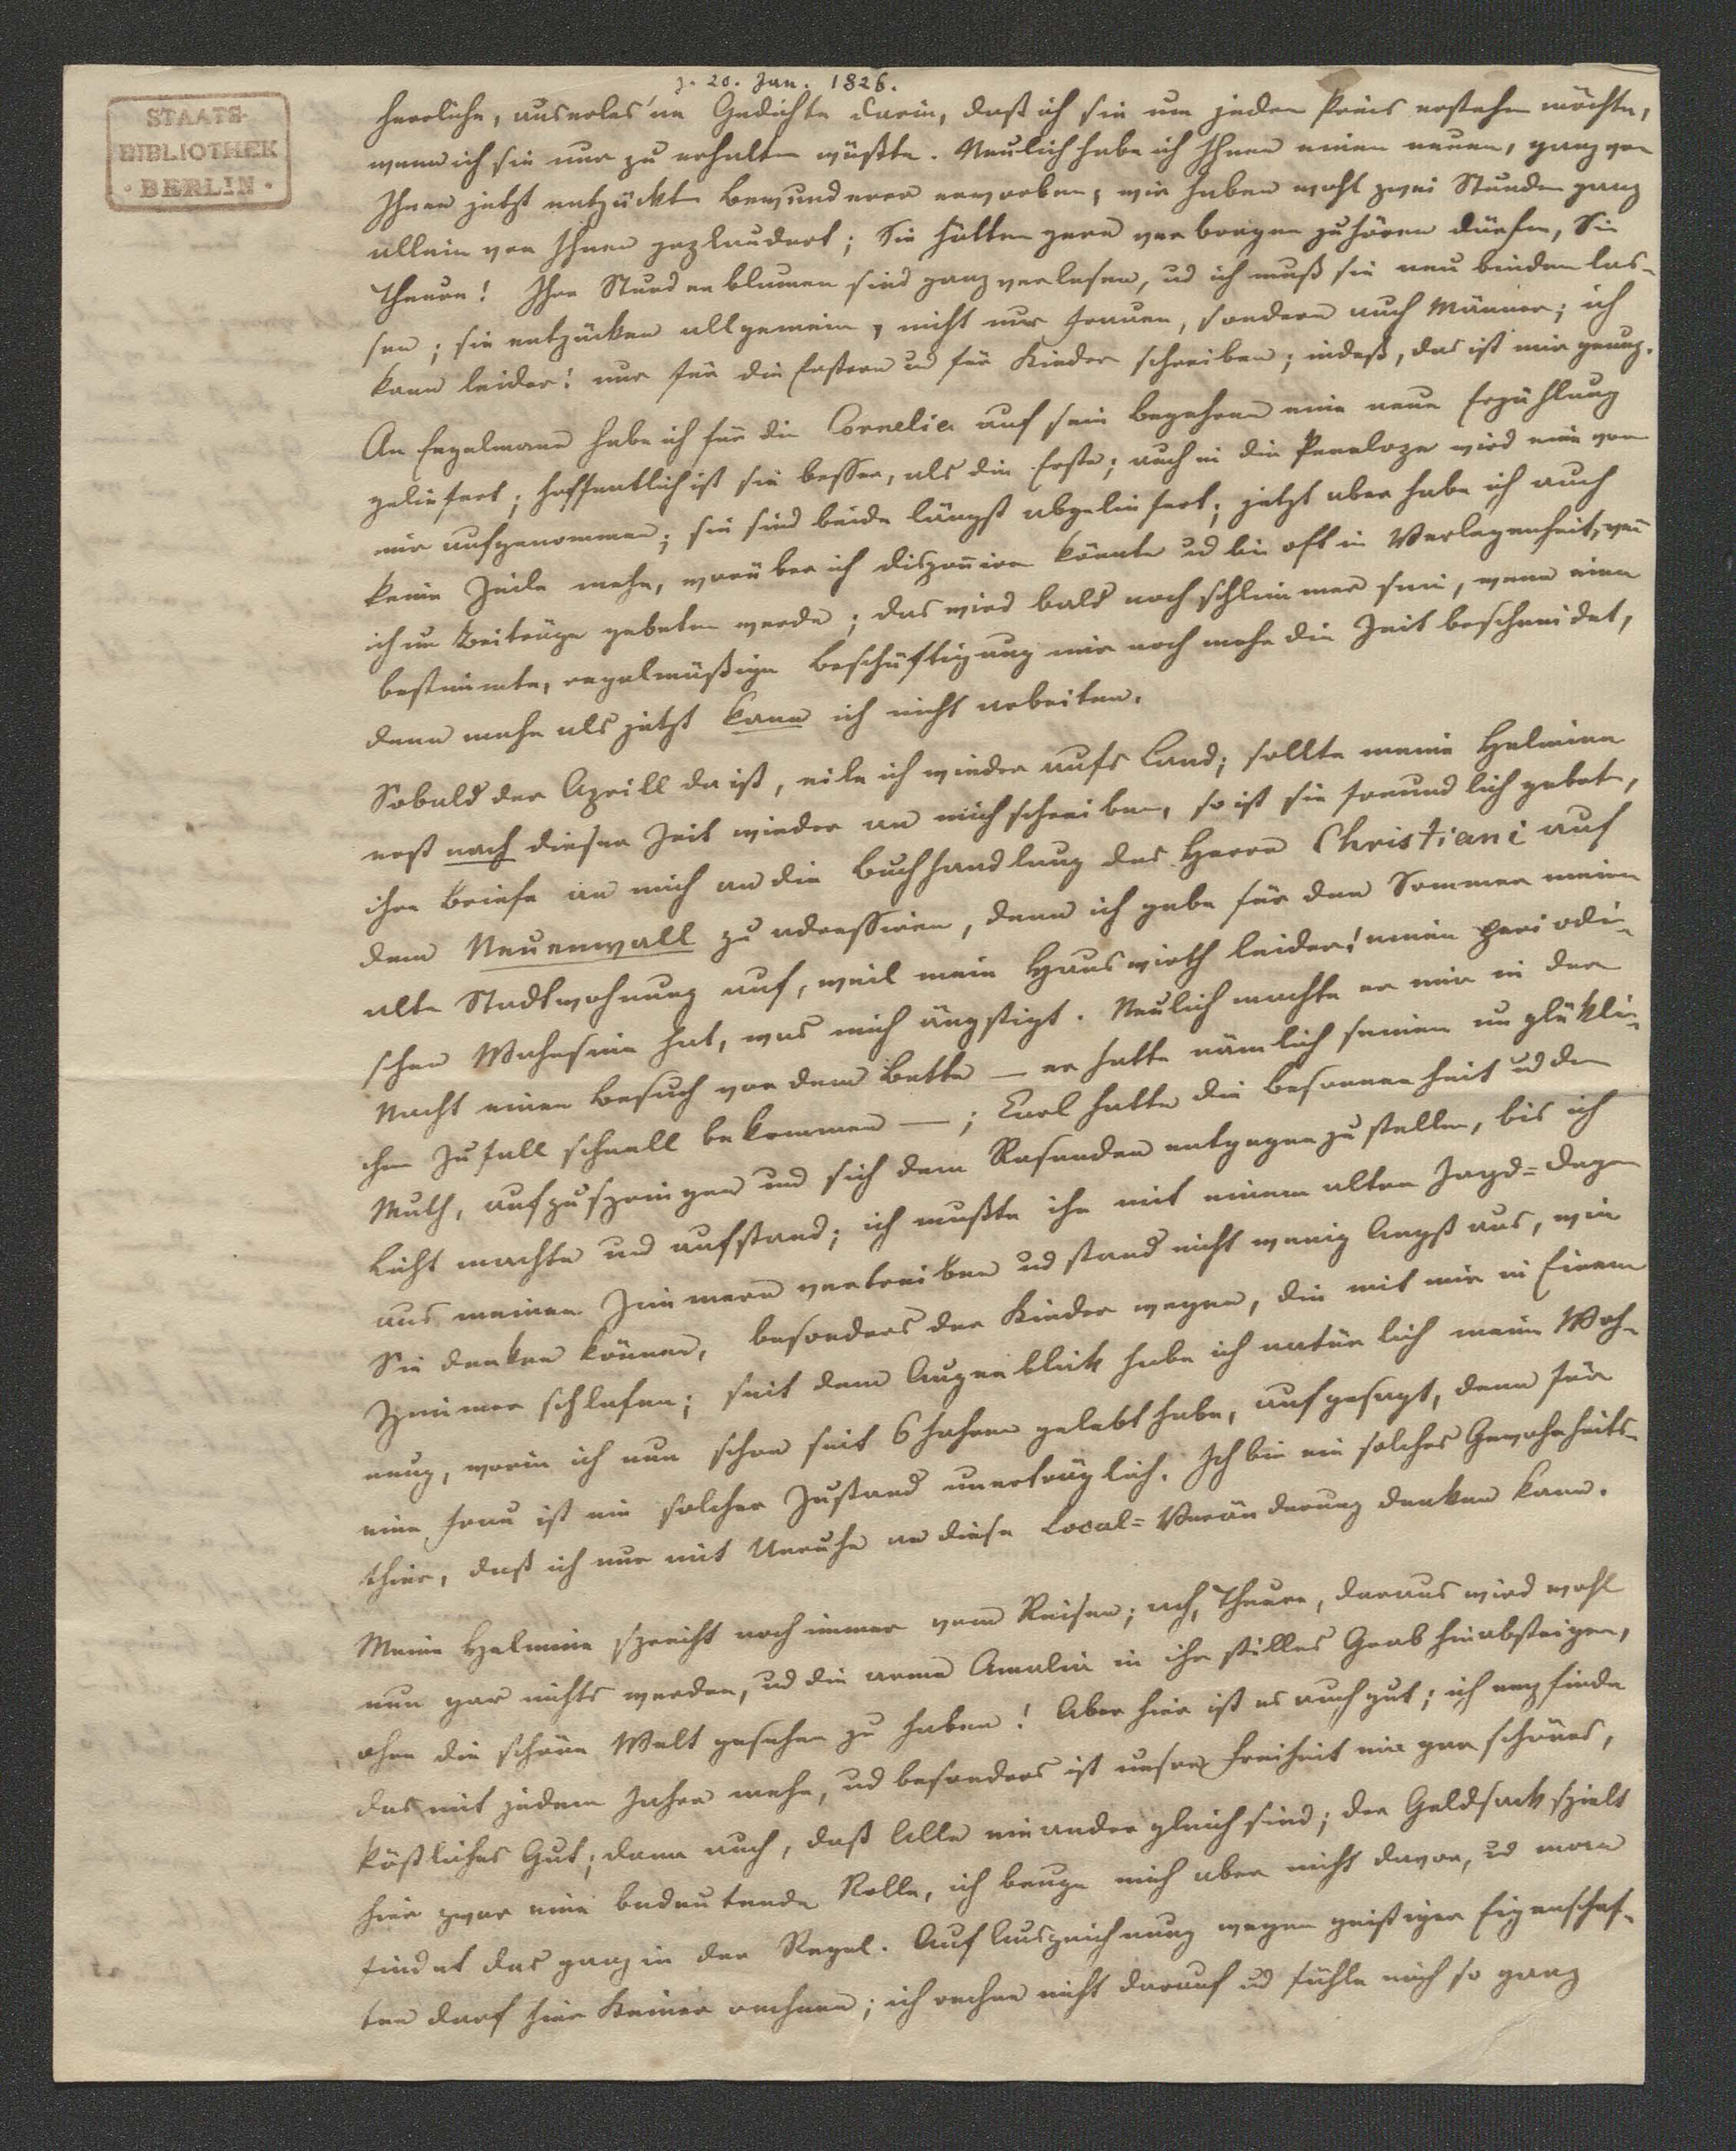 z. 20. Jan. 1826.
STAATS-
BIBLIOTHEK
· BERLIN ·
herrliche, auserles'ne Gedichte darin, daß ich sie um jeden Preis erstehen möchte,
wenn ich sie nur zu erhalten wüßte. Neulich habe ich Ihnen einen neuen, ganz von
Ihnen jetzt entzückten Bewunderer erworben; wir haben wohl zwei Stunden ganz
allein von Ihnen geplaudert; Sie hätten gern verborgen zuhören dürfen, Sie
Theure! Ihre Stundenblumen sind ganz verlesen, ud ich muß sie neu binden las-
sen; sie entzücken allgemein, nicht nur Frauen, sondern auch Männer; ich
kann leider! nur für die Erstern ud für Kinder schreiben; indeß, das ist mir genug.
An Engelmann habe ich für die Cornelia auf sein Begehren eine neue Erzählung
geliefert; hoffentlich ist sie besser, als die Erste; auch in die Penelope wird eine von
mir aufgenommen; sie sind beide längst abgeliefert; jetzt aber habe ich auch
keine Zeile mehr, worüber ich disponiren könnte ud bin oft in Verlegenheit, wen̄
ich um Beiträge gebeten werde; das wird bald noch schlimmer sein, wenn eine
bestimmte, regelmäßige Beschäftigung mir noch mehr die Zeit beschneidet,
denn mehr als jetzt kann ich nicht arbeiten.
Sobald der Aprill da ist, eile ich wieder aufs Land; sollte meine Helmine
erst nach dieser Zeit wieder an mich schreiben, so ist sie freundlich gebeten,
ihre Briefe an mich an die Buchhandlung des Herrn Christiani auf
dem Neuenwall zu adressiren, denn ich gebe für den Sommer meine
alte Stadtwohnung auf, weil mein Hauswirth leider! einen periodi-
schen Wahnsinn hat, was mich ängstigt. Neulich machte er mir in der
Nacht einen Besuch vor dem Bette — er hatte nämlich seinen unglükli-
chen Zufall schnell bekommen —; Carl hatte die Besonnenheit ud den
Muth, aufzuspringen und sich dem Rasenden entgegen zu stellen, bis ich
Licht machte und aufstand; ich mußte ihn mit einem alten Jagd=degen
aus meinen Zimmern vertreiben ud stand nicht wenig Angst aus, wie
Sie denken können, besonders der Kinder wegen, die mit mir in Einem
Zimmer schlafen; seit dem Augenblick habe ich natürlich meine Woh-
nung, worin ich nun schon seit 6 Jahren gelebt habe, aufgesagt, denn für
eine Frau ist ein solcher Zustand unerträglich. Ich bin ein solches Gewohnheits-
thier, daß ich nur mit Unruhe an diese Local=Veränderung denken kann.
Meine Helmine spricht noch immer vom Reisen; ach, Theure, daraus wird wohl
nun gar nichts werden, ud die arme Amalia in ihr stilles Grab hinabsteigen,
ohne die schöne Welt gesehen zu haben! Aber hier ist es auch gut; ich empfinde
das mit jedem Jahre mehr, ud besonders ist unsere Freiheit ein gar schönes,
köstliches Gut; dann auch, daß Alle einander gleich sind; der Geldsack spielt
hier zwar eine bedeutende Rolle, ich beuge mich aber nicht davor, ud man
findet das ganz in der Regel. Auf Auszeichnung wegen geistiger Eigenschaf-
ten darf hier Keiner rechnen; ich rechne nicht darauf ud fühle mich so ganz